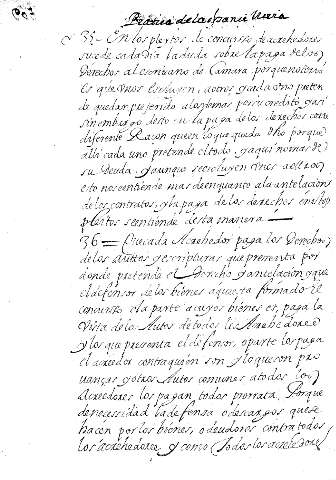 Pratica de la chanci lleria
35 - En los pleitos de concurso de acrehedores
suzede cada dia la duda sobre la paga de los
Derechos al escrivano de Camara, porque no todos
les que unos excluyen, a otros y an de o no preten
de quedar preferido a los demas por su credito, y assi
sin embargo desto en la paga de los derechos corre
diferente Razon que en lo que queda dho porque
alli cada uno pretende el todo, y aqui no mas de
su Deuda, y aunque se excluyen unos a otros
esto no se entiende mas de en quanto a la antelacion
de los contratos, y la paga de los derechos en los
pleitos se entiende desta manera
36 = Que cada Acrehedor paga los Derechos
de los autos y escripturas que presenta por
donde pretende el Derecho y antelacion, y que
el defensor de los bienes a questa formado el
concurso, o la parte cuyos bienes es, paga la
Vista de los Autos de todos los Acrehedores
y los que presenta el defensor, o parte los paga
el acreedor contra quien son y los que son pro
vanças y otros Autos comunes a todos los
Acreedores los pagan todos prorrata. Porque
de necessidad la defensa o descargos que se
hacen por los bienes, o deudores contra todos
los acrehedores y como todos los acreedores